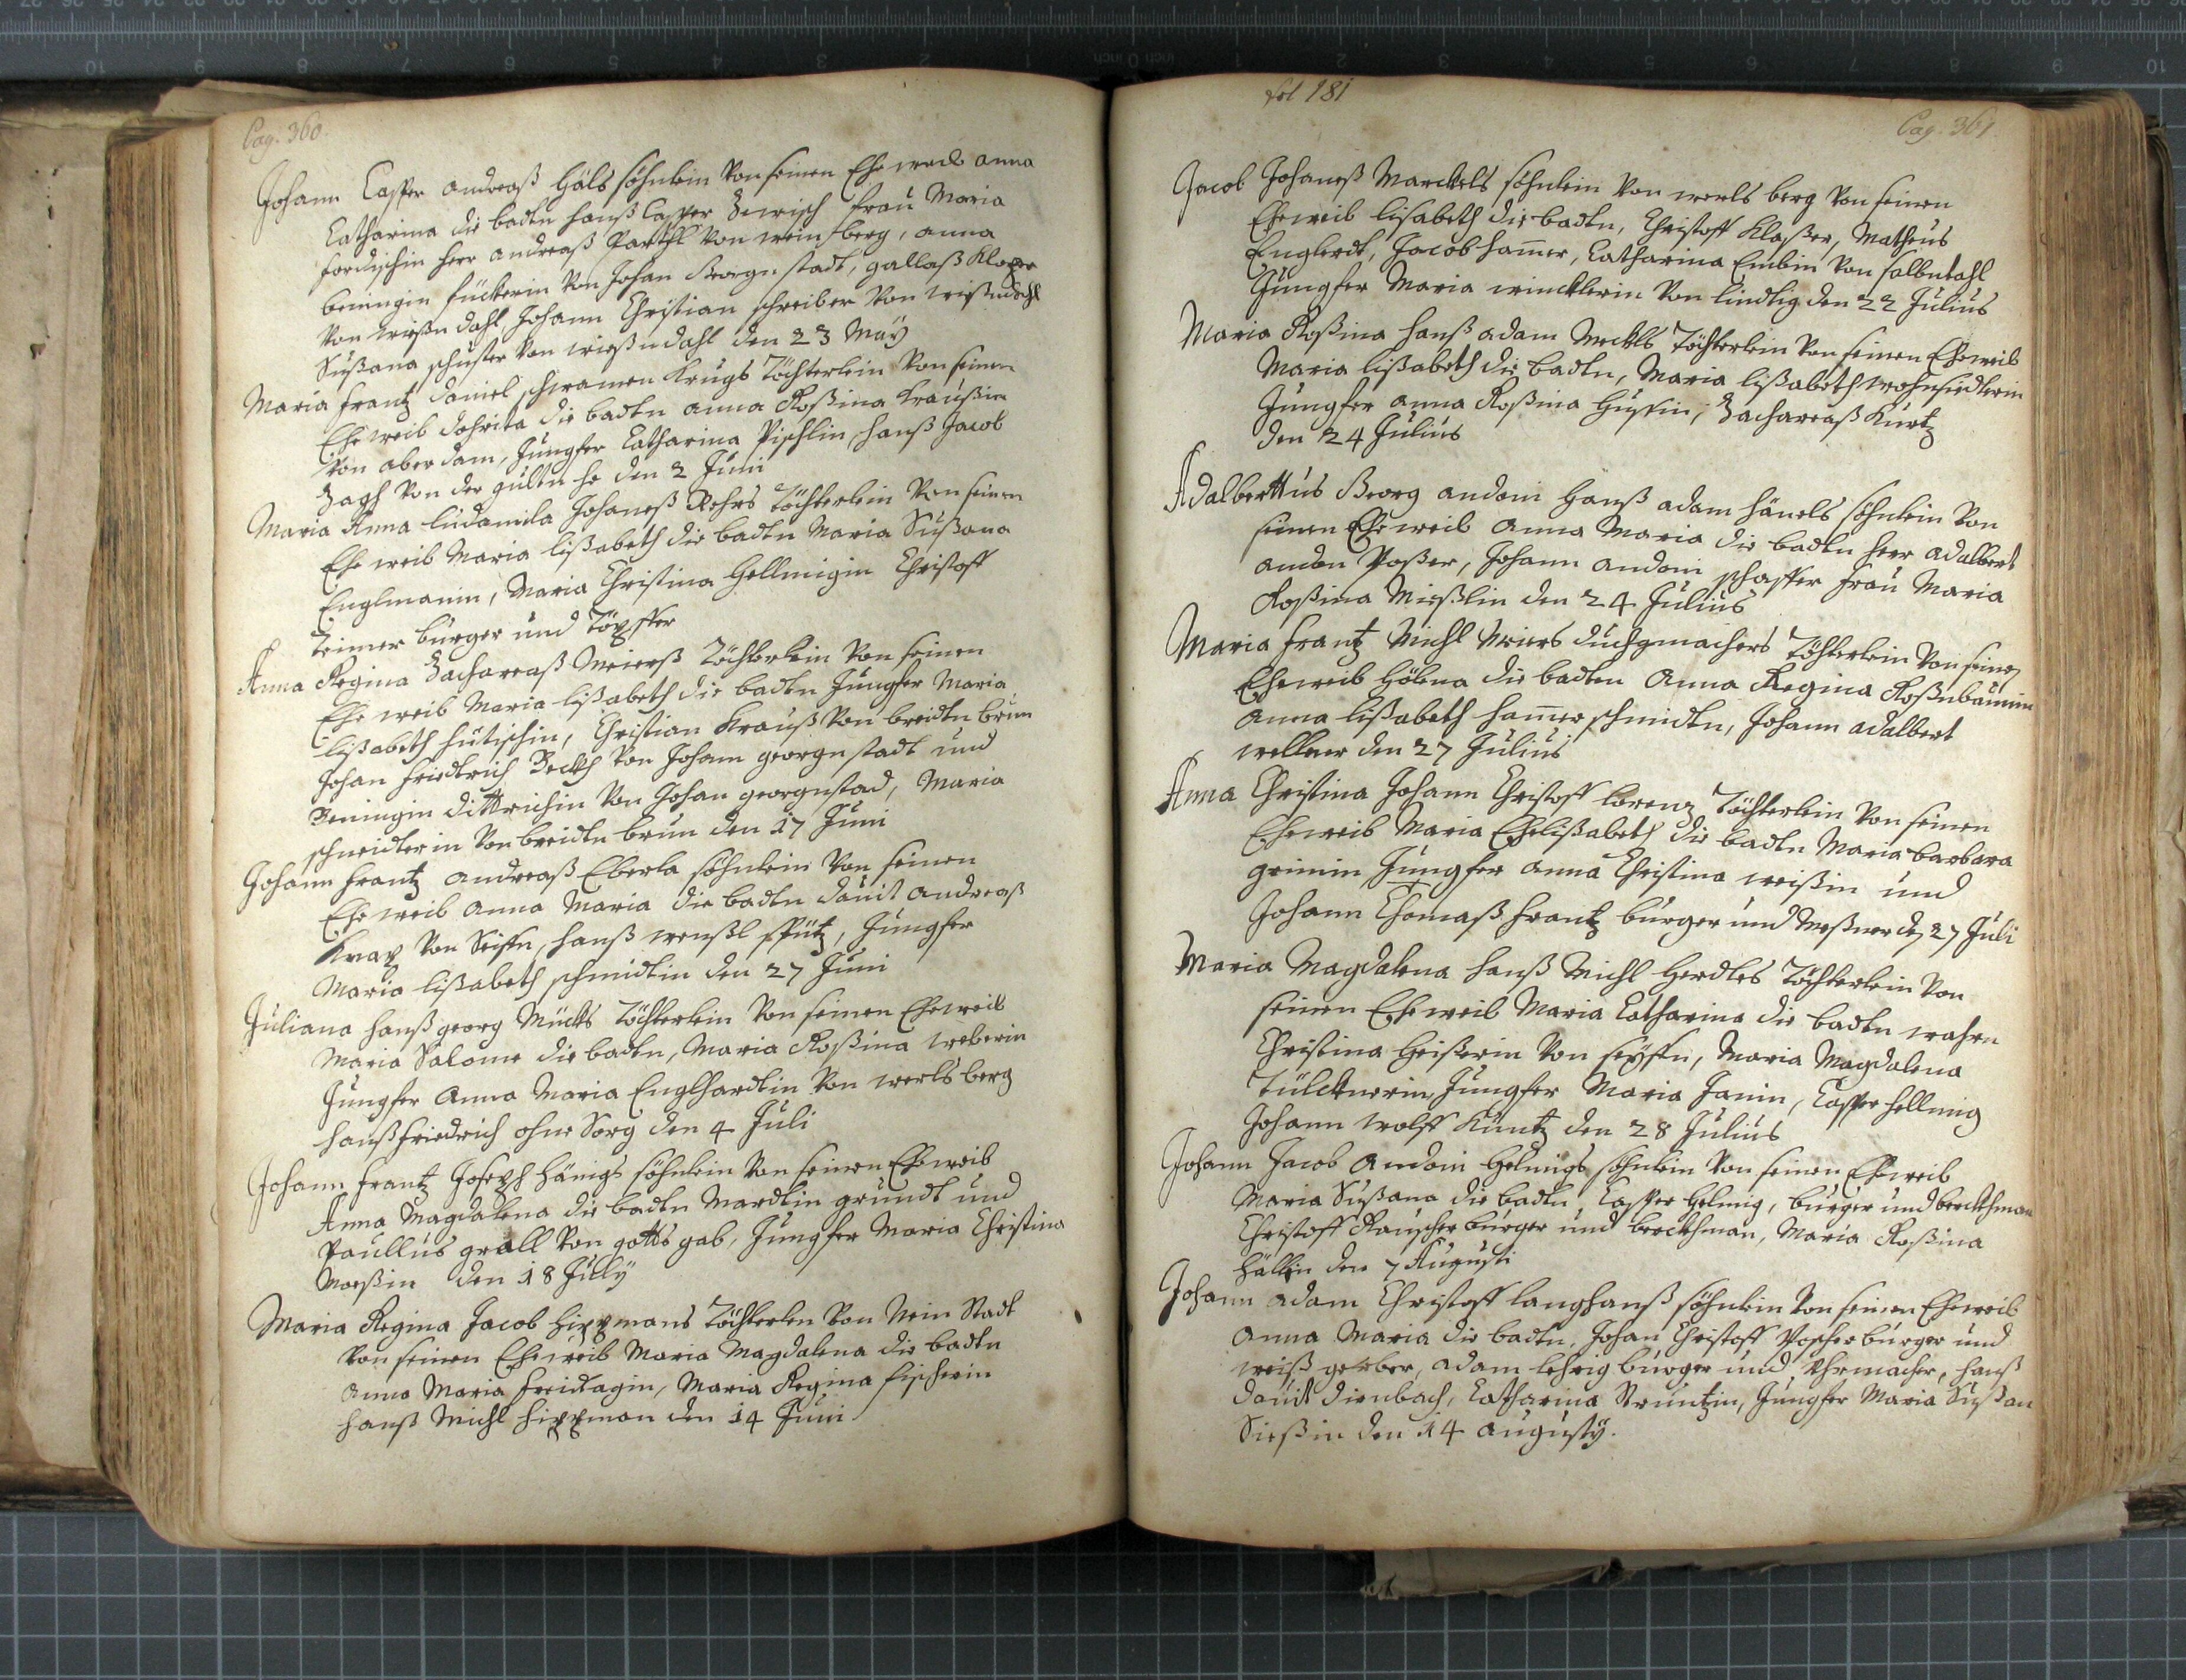 Pag. 360.
Johann Casper andreaß Häls söhnlein Von seinen Ehe weib anna
Catharina die badtn hanß Casper Zewisch frau Maria
fordischin herr andreaß Parthl Von weinsberg, anna
beningin fückerin Von Johan Georgn stadt, gallaß Kloper
Von wießn dahl, Johann Christian schreiber Von wißndahl
Sußana schuster Von wießndahl den 23 Maÿ
Maria frantz daniel schramen Krugs Töchterlein Von seinen
Ehe weib dohrita die badtn anna Roßina Kraußin
Von aber dam, Jungfer Catharina Pischlin, hanß Jacob
Zagh Von der gültn he den 2 Juni
Maria Anna ludamila Johaneß Rehrs Töchterlein Von seinen
Ehe weib Maria lißabeth die badtn Maria Sußana
Englmanin, Maria Christina Hellmigin Christoff
Teimer burger und Töpffer
Anna Regina Zachareaß Meierß Töchterlein Von seinen
Ehe weib Maria lißabeth die badtn Jungfer Maria
lißabeth hütischin, Christian Krauß Von breidtn brun
Johan friedtrich Beckh Von Johann georgn stadt und
Beningin dittrichin Von Johan georgnstad, Maria
schneidterin Von breidtn brun den 17 Juni
Johann frantz andreaß Eberla söhnlein Von seinen
Ehe weib Anna Maria die badtn dauit andreaß
Knap Von Seiffn, hanß wenßl sputz, Jungfer
Maria lißabeth schmidtin den 27 Juni
Juliana hanß georg Mückts Töchterlein Von seinen Eheweib
Maria Salome die badtn, Maria Roßina weberin
Jungfer Anna Maria Englhardtin Von werls berg
hanß friedrich ohne Sorg den 4 Juli
Johann frantz Joseph Hänigs söhnlein Von seinen Eheweib
Anna Magdalena die badtn Mardtin grundt und
Paullus grall Von gotts gab, Jungfer Maria Christina
Moeßin den 18 Julÿ
Maria Regina Jacob hippmans Töchterlen Von Nein Stadt
Von seinen Eheweib Maria Magdalena die badtn
Anna Maria freidtagin, Maria Regina fischerin
hanß Michl hippman den 14 Juni
fol 181
Pag. 361
Jacob Johaneß Marckels söhnlein Von werls berg Von seinen
Eheweib lisabeth die badtn, Christoff Klaßer, Matheus
Englerdt, Jacob ham̄er, Catharina Embin Von salbntahl
Jungfer Maria wincklerin Von lindlig den 22 Julius
Maria Roßina hanß adam Meckls Töchterlein Von seinen Eheweib
Maria lißabeth die badtn, Maria lißabeth wohnsiedlerin
Jungfer anna Roßina Hußin, Zachareaß Kurtz
den 24 Julius
Adalberttus Georg andoni Hanß adam hänels söhnlein Von
seinen Ehe weib Anna Maria die badtn herr adalbert
andon Poßer, Johann andoni schaffer frau Maria
Roßina Mießlin den 24 Julius
Maria frantz Michl Meiers duchgmachers Töhterlein Von seinen
Eheweib Hölena die badten Anna Regina Roßnbaumin
Anna lißabeth ham̄erschmidtn, Johann adalbert
wellner den 27 Julius
Anna Christina Johann Christoff lorenz Töchterlein Von seinen
Eheweib Maria Ehelißabeth die badtn Maria barbara
grimin Jungfer anna Christina weißin und
Johann Thomaß frantz burger und Meßner den 27 Juli
Maria Magdalena hanß Michl Herdtes Töchterlein Von
seinen Ehe weib Maria Catharina die badtn wahrn
Christina Heißerin Von seÿffn, Maria Magdalena
Tülcknerin Jungfer Maria Janin, Casper hellmig
Johann wolff Kuntz den 28 Julius
Johann Jacob Andoni Helmigs söhnlein Von seinen Eheweib
Maria Sußana die badtn, Casper Helmig, burger und berckhman
Christoff Rauscher burger und berckhman, Maria Roßina
Hällin den 7 Augusti
Johann adam Christoff langhanß söhnlein Von seinen Eheweib
Anna Maria die badtn, Johan Christoff Poscher burger und
weiß gerber, adam lehrig burger und Vhrmacher, hanß
dauit dienbach, Catharina Struntzin, Jungfer Maria Sußan
Sießin den 14 augustÿ.